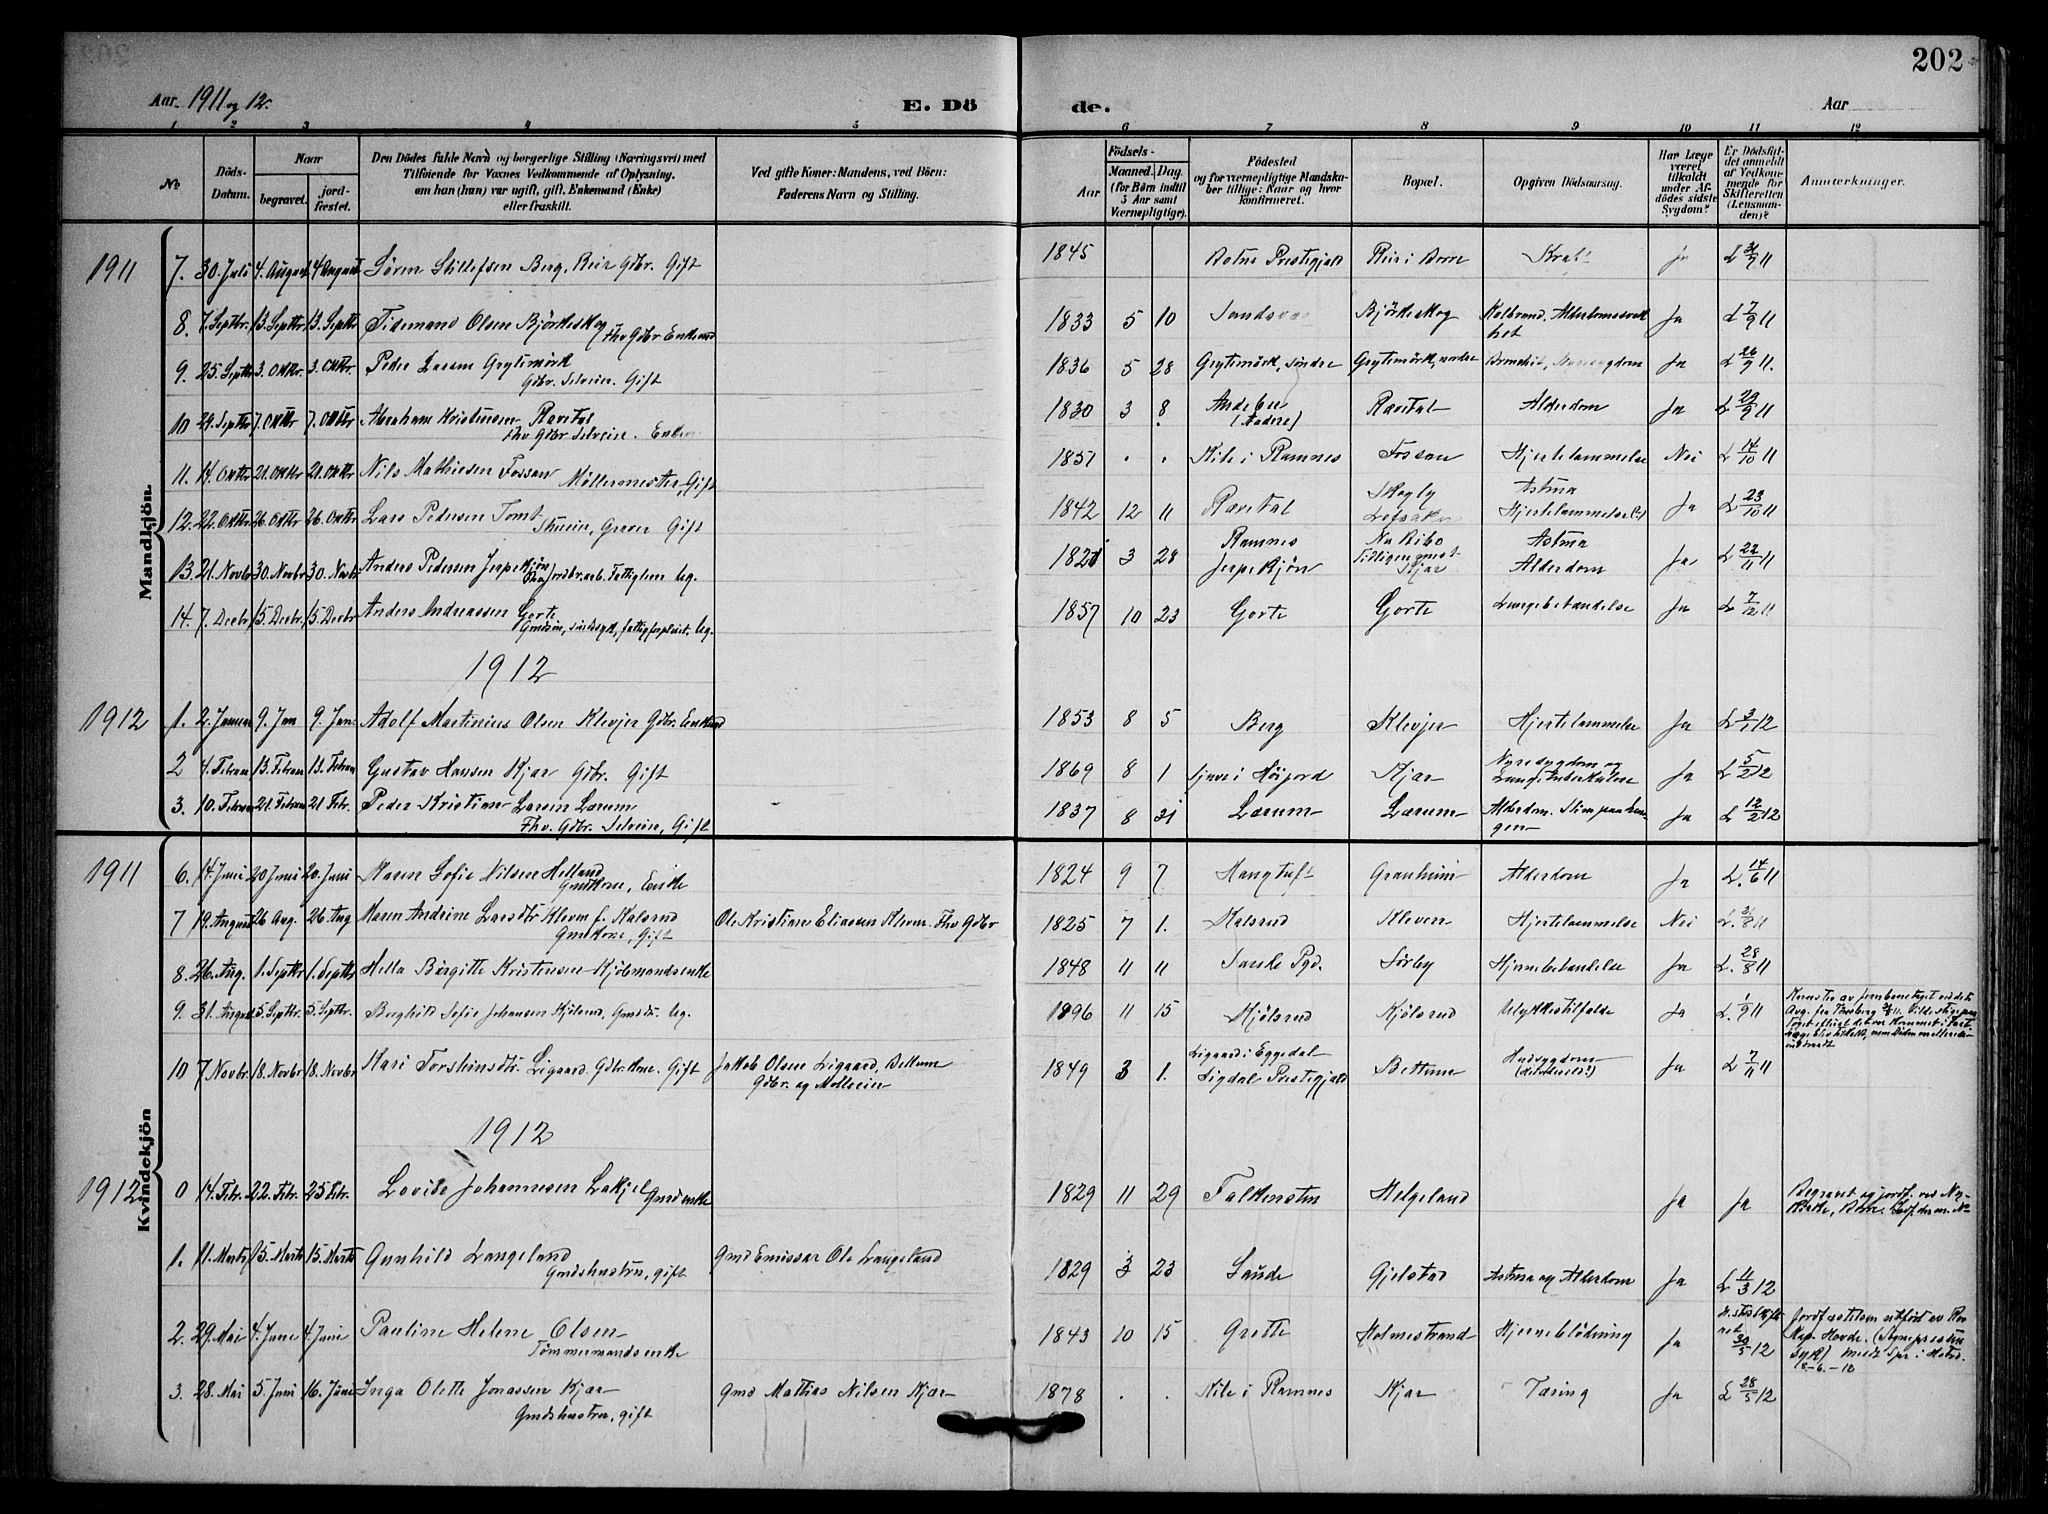 202
Aar 1911 og 12.
E. Dö
de.
Aar
1 2 3 4 5 6 7 8 9 10 11 12
No
Döds-Datum.
Naar
begravet.
jord-fæstet.
Den Dödes fulde Navn og borgerlige Stilling (Næringsvei) med
Tilföiende for Voxnes Vedkommende af Oplysning,
om han (hun) var ugift, gift, Enkemand (Enke)
eller fraskilt.
Ved gifte Koner: Mandens, ved Börn:
Faderens Navn og Stilling.
Födsels-
Aar
Maaned. Dag.
(for Börn indtil
5 Aar samt
Værnepligtige).
Födested
og for værnepligtige Mandska-
ber tillige: Naar og hvor
konfirmeret.
Bopæl.
Opgiven Dödsaarsag.
Har Læge
været
tilkaldt
under Af-
dödes sidste
Sygdom?
Er Dödsfal-
det anmeldt
af Vedkom-
mende for
Skifteretten
(Lensman-
den)?
Anmærkninger.
Mandkjön.
1911 7. 30. Juli 4. August 4 August Sören Berg, Reir Gdbr. Gift 1845 Botne Prestegjeld Reir i Borre ja L 31/7 11
8. 7. Septbr. 13. Septbr 13. Septbr Tidemand Olsen Björkeskog Fhv Gdbr Enkemd 1833 5 10 Björkeskog Koldbrand, Ja L 7/9 11
9. 25. Septbr 3. Oktbr. 3. Oktbr. Peder Larsen Grytemörk Gdbr. Selveier. Gift 1836 5 28 Grytemörk, Söndre Grytemörk, nordre Ja L 26/9 11.
10 29. Septbr 7. Oktbr 7. Oktbr Abraham Kristensen Ravetal Fhv Gdbr Selveier. 1830 3 8. Andebu Ravetal Alderdom Ja L 29/9 11
11. 14. Oktbr 21. Oktbr 21. Oktbr Nils Mathiesen Fossan Möllermester, Gift 1857 . . Kile i Ramnes Fossan Hjertelammelse Nei L 14/10 11
12. 22. Oktbr 26. Oktbr 26. Oktbr Lars Pedersen Tomt Graver Gift 1842 12 11 Ravetal Skogly Astma Hjertelammelse Ja L 23/10 11
13. 21. Novbr 30. Novbr 30. Novbr Anders Pedersen Jerpekjön Fhv Jordbr.arb. Fattiglem Ug. 1821 3 28 Ramnes Jerpekjön Nu Kibo Tidligere Kjar Astma Alderdom Ja L 22/11 11
14. 7. Decbr 15. Decbr. 15. Decbr Anders Andreassen Gorte Gmdsön, sindssyk, ug. 1857 10 23 Gorte Gorte Lungebetændelse Ja L 7/12 11
1912
1912 1. 2. Januar 9. Jan 9. Jan. Adolf Martinius Olsen Klevjer Gdbr. Enkemd 1853 8 5 Berg Klevjer Hjertelammelse Ja L 3/1 12
2 4. Februar 13. Februar 13. Februar Gustav Hansen Kjar Gdbr. Gift 1869 8 1 i Höijord Kjar Nyresygdom og Lungetuberkulose Ja L 5/2 12
3. 10. Februar 21. Februar 21. Febr. Peder Kristian Larsen Lærum Fhv. Gdbr. Selveier, Gift 1837 8 31 Lærum Lærum Alderdom. Ja L 12/2 12
Kvindekjön
1911 6. 14. Juni 20 Juni 20. Juni Maren Sofie Nilsen Helland Gmdkone, Enke 1824 9 7 Granheim Alderdom Ja L. 14/6 11
7 19. August 26 Aug. 26. Aug Maren Andrine Larsdtr Kleven f. Kalsrud Gmdkone, Gift Ole Kristian Eliassen Kleven. Fhv Gdbr 1825 7 1. Kalsrud Kleven Hjertelammelse Nei L. 21/8 11
8 26. Aug. 1. Septbr 1. Septbr Hella Birgitte Kristensen Kjöbmandsenke 1848 11 11 Pgd. Sörby Hjernebetændelse Ja L. 28/8 11
9. 31. August 5. Septbr. 5. Septbr. Borghild Sofie Johansen Kjölsrud, Gmdsdtr. ug. 1896 11 15 Kjölsrud Kjölsrud Ulykkestilfælde Ja L. 1/9 11
10 7 Novbr. 18. Novbr 18. Novbr Kari Torstensdtr. Ligaard, Gdbrkone. Gift Jakob Olsen Ligaard, Bettum Gdbr. og Molleeier 1849 3 1. Ligaard i Eggedal Sigdal Prestegjeld Bettum Ja L 7/11 11
1912
1912 0 14. Febr. 22. Febr. 25 Febr. Lovise Johannesen Gmdsenke 1829 11 29 Falkensten Helgeland Ja Ja Begravet og jordf. ved
1. 11. Marts 15. Marts 15. Marts Gunhild Langeland Gmdshustru, gift Gmd Emissær Ole Langeland 1829 3 23 Sande Gjelstad Astma og Alderdom Ja L 11/3 12
2. 29. Mai 4. June 4. Juni Pauline Helene Olsen Tömmermandsenke 1843 10 15 Grette Holmestrand Hjerneblödning Ja 30/5 12
3. 28. Mai 5. Juni 16. June Inga Olette Jonassen Kjær Gmdshustru, gift Gmd Mathias Nilsen Kjær 1878 . . Kile i Ramnes Kjar Tæring Ja L 28/5 12